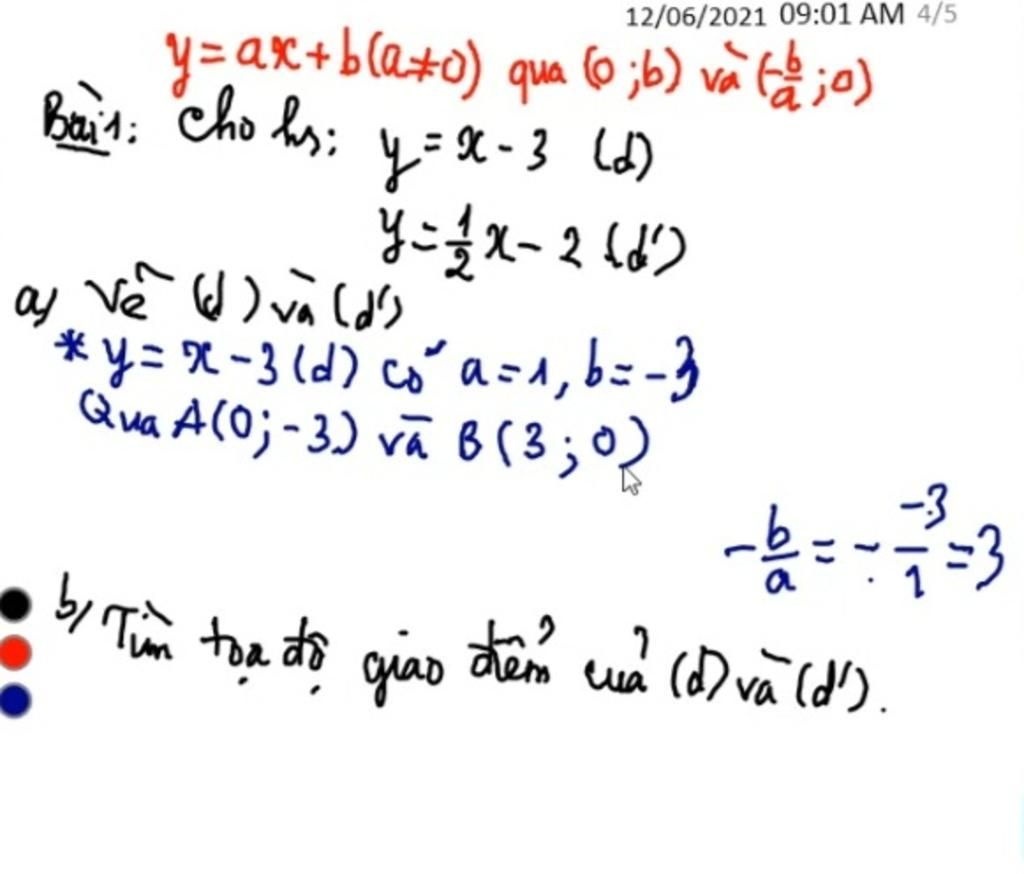 12/06/2021 09:01 AM 4/5
y = ax + b (a ≠ 0) qua (0 ; b) và (-b/a ; 0)
Bài 1: Cho hs: y = x - 3 (d)
y = 1/2 x - 2 (d')
a/ Vẽ (d) và (d')
* y = x - 3 (d) có a = 1, b = -3
Qua A(0; -3) và B(3; 0)
- b/a = - -3/1 = 3
b/ Tìm tọa độ giao điểm của (d) và (d').